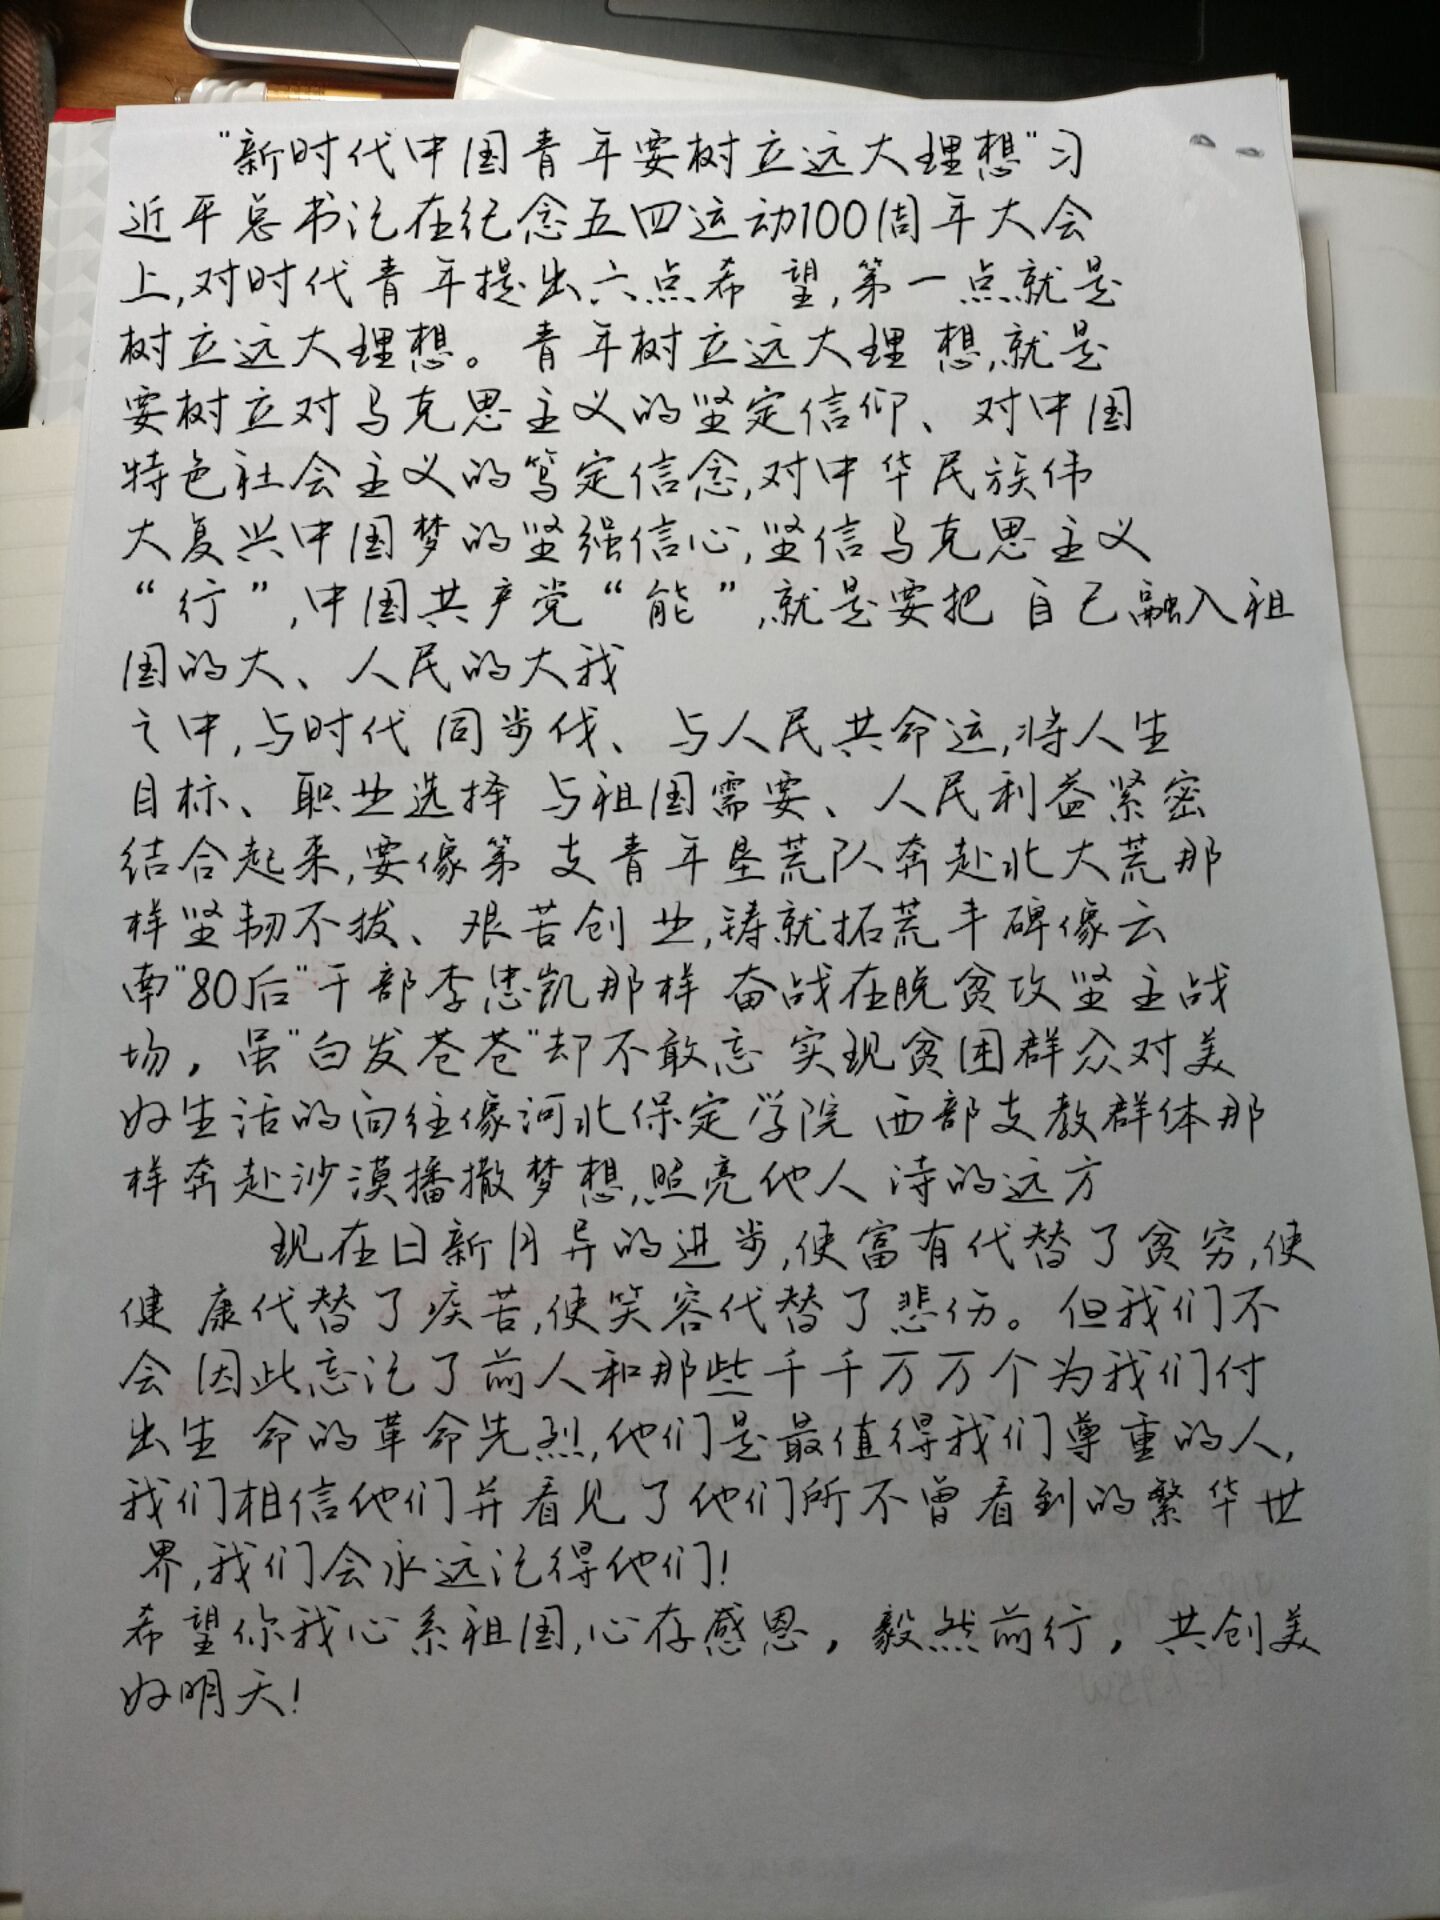 "新时代中国青年要树立远大理想"习
近平总书记在纪念五四运动100周年大会
上,对时代青年提出六点希望,第一点就是
树立远大理想。青年树立远大理想,就是
要树立对马克思主义的坚定信仰、对中国
特色社会主义的笃定信念,对中华民族伟
大复兴中国梦的坚强信心,坚信马克思主义
“行”,中国共产党“能”,就是要把自己融入祖
国的大、人民的大我
之中,与时代同步伐、与人民共命运,将人生
目标、职业选择与祖国需要、人民利益紧密
结合起来,要像第 支青年垦荒队奔赴北大荒那
样坚韧不拔、艰苦创业,铸就拓荒丰碑像云
南"80后"干部李忠凯那样奋战在脱贫攻坚主战
场,虽"白发苍苍"却不敢忘实现贫困群众对美
好生活的向往像河北保定学院西部支教群体那
样奔赴沙漠播撒梦想,照亮他人诗的远方
现在日新月异的进步,使富有代替了贫穷,使
健康代替了疾苦,使笑容代替了悲伤。但我们不
会因此忘记了前人和那些千千万万个为我们付
出生命的革命先烈,他们是最值得我们尊重的人,
我们相信他们并看见了他们所不曾看到的繁华世
界,我们会永远记得他们!
希望你我心系祖国,心存感恩,毅然前行,共创美
好明天!